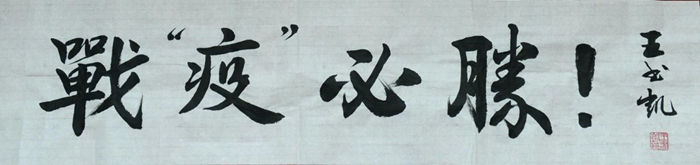 戰“疫”必勝！
王书凯